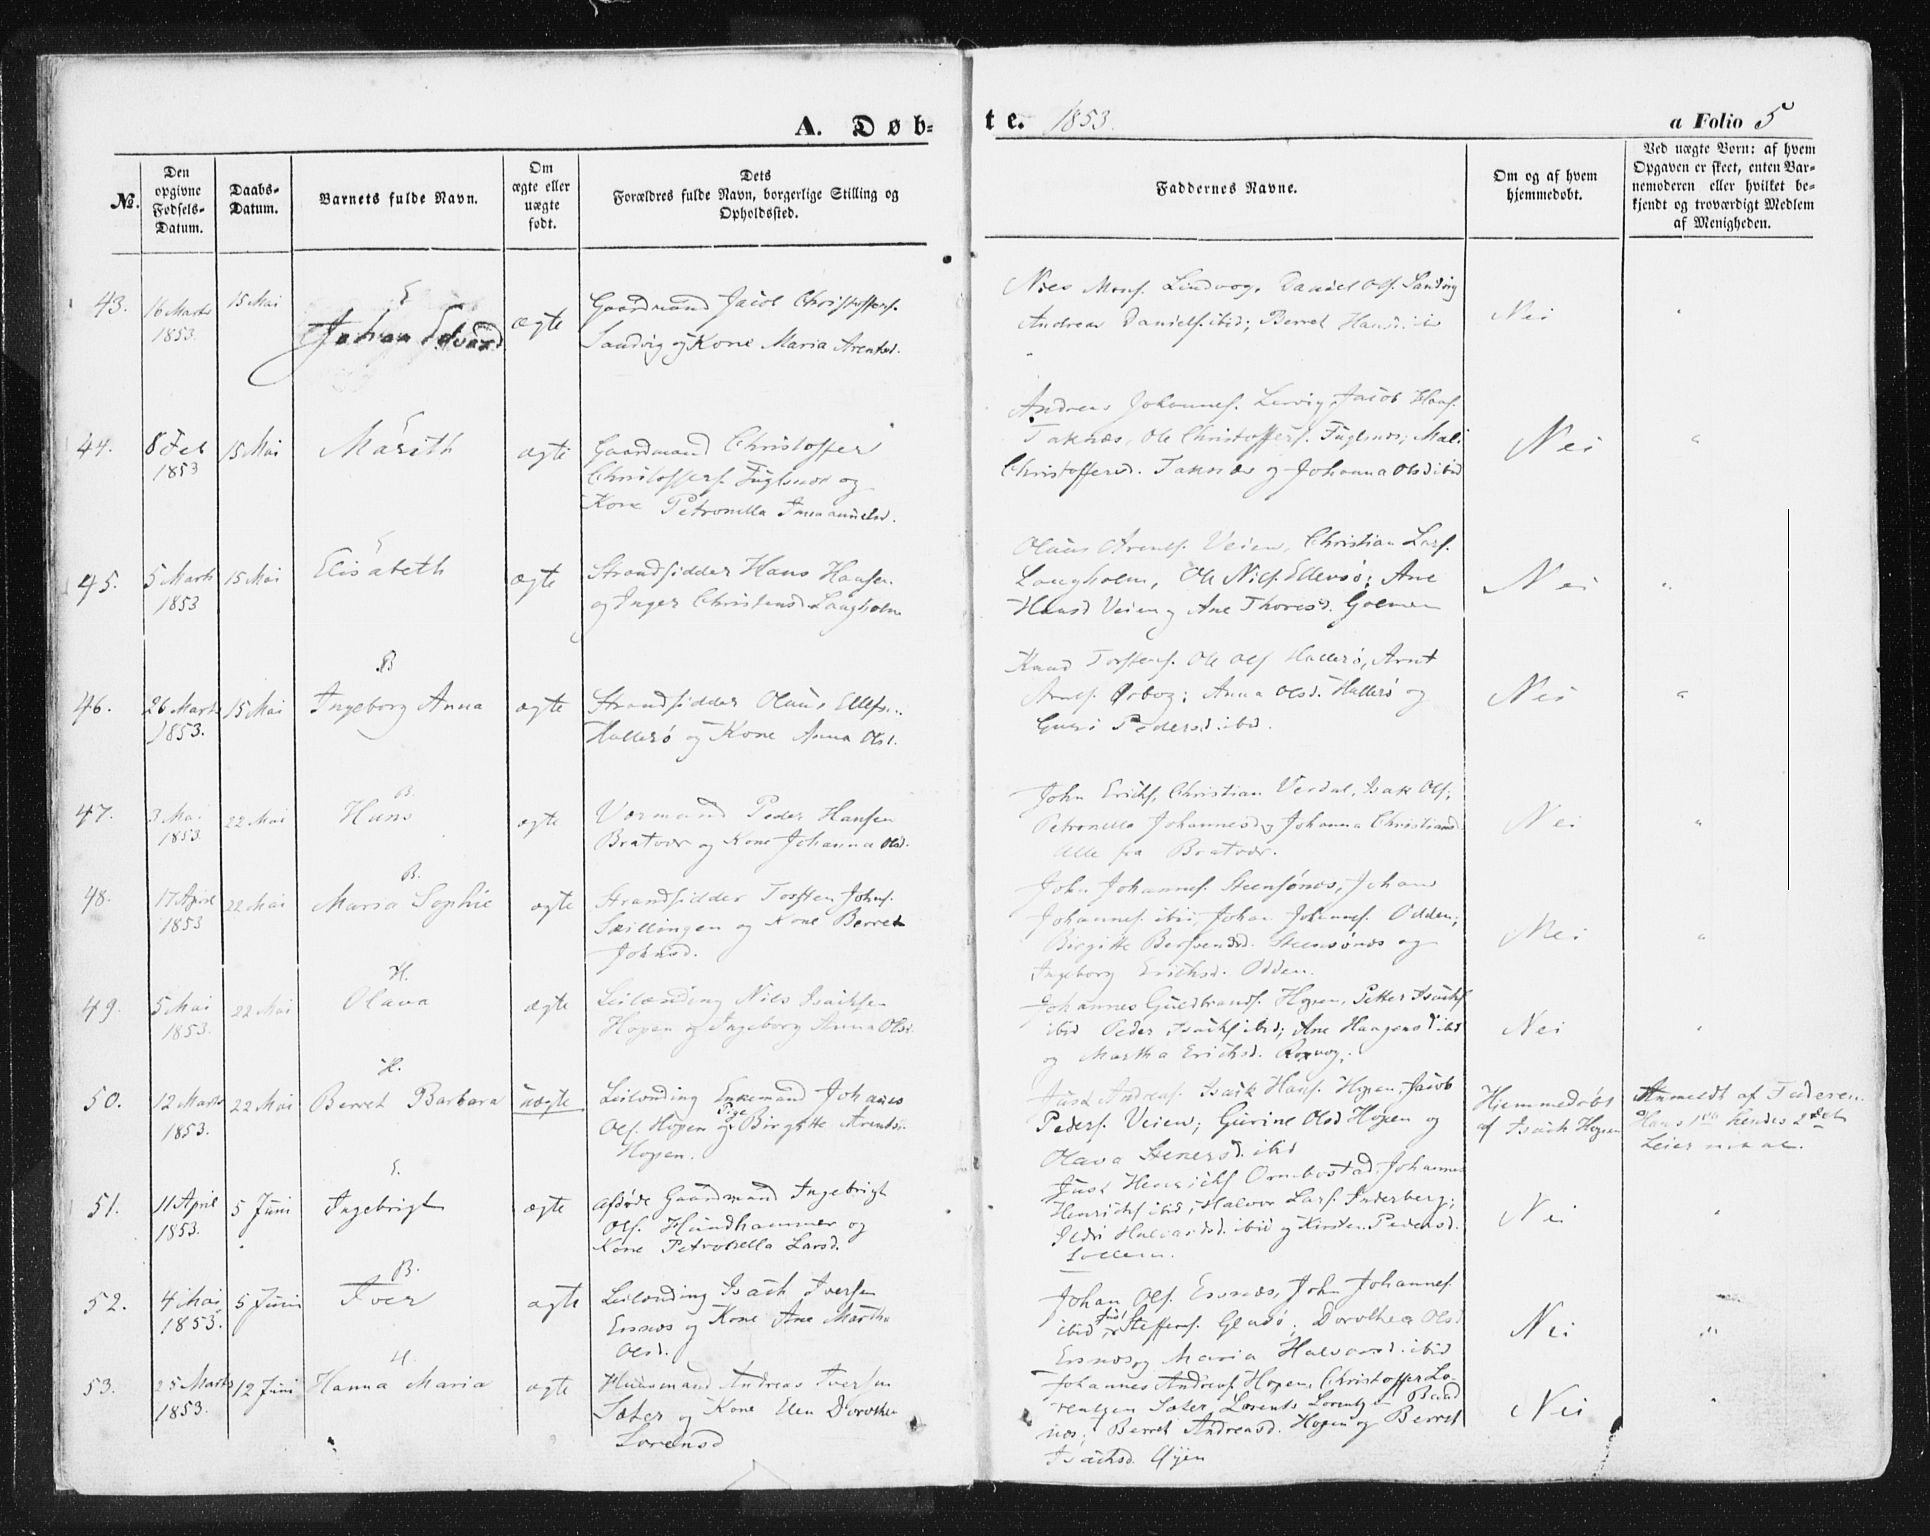 A. Døb-
te. 1853.
a Folio 5
No.
Den opgivne Fødsels-Datum.
Daabs-Datum.
Barnets fulde Navn.
Om ægte eller uægte født.
Dets Forældres fulde Navn, borgerlige Stilling og Opholdssted.
Faddernes Navne.
Om og af hvem hjemmedøbt.
Ved uægte Born: af hvem Opgaven er skeet, enten Barnemoderen eller hvilket bekjendt og troværdigt Medlem af Menigheden.
43. 16 Marts 1853 15 Mai
E
Johan Edvard
ægte
Gaardmand Jacob Christoffers.
Sandvig og Kone Maria Arentsd.
Niels Mons. Lindvog, Daniel Ols. Sandvig
Andreas Daniels. ibid; Berret Hansd. ib
Nei
"
44. 8 Feb 1853 15 Mai
E
Marith
ægte
Gaardmand Christoffer
Christoffers. Fuglsnæs og
Kone Petronella Immanuelsd.
Andreas Johannes. Lervig, Jacob Hans.
Taknæs, Ole Christoffers. Fuglsnæs; Mal.
Christoffersd. Taknæs og Johanna Olsd ibid
Nei
"
45. 5 Marts 1853 15 Mai
E
Elisabeth
ægte
Strandsidder Hans Hansen
og Inger Christensd. Langholm
Olaus Arents. Veien, Christian Lars.
Langholm, Ole Niels. Ellevsø; Ane
Hansd Veien og Ane Thoresd. Golmen
Nei
"
46. 26 Marts 1853. 15 Mai
B
Ingeborg Anna
ægte
Strandsidder Olaus Ellefs.
Hallerø og Kone Anna Olsd.
Knud Torstens. Ole Ols Hallerø, Arnt
Arnts. Ørbog; Anna Olsd. Hallerø og
Guri Pedersd. ibid.
Nei
"
47. 3 Mai 1853 22 Mai
B.
Hans
ægte
Værmand Peder Hansen
Bratvær og Kone Johanna Olsd.
John Erichs, Christian Verdal, Isak Ols;
Petronella Johannesd og Johanna Christiansd
Alle fra Bratvær.
Nei
"
48. 17 April 1853 22 Mai
B.
Maria Sophie
ægte
Strandsidder Torsten Johns.
Skillingen og Kone Berret
Johnsd.
John Johannes. Steensønæs, Johan
Johannes. ibid, Johan Johannes. Odden;
Birgitte Bersvendsd. Steensønæs og
Ingeborg Erichsd. Odden.
Nei
"
49. 5 Mai 1853. 22 Mai
H.
Olava
ægte
Leilænding Niels Isaksen
Hopen og Ingeborg Anna Olsd.
Johannes Guldbrands. Hopen, Petter Isachs
ibid Peder Isachs ibid; Ane Haagensd ibid
og Martha Erichsd. Roxvog.
Nei
"
50. 12 Marts 1853. 22 Mai
H.
Berret Barbara
uægte
Leilænding Enkemand Johannes
Ols. Hopen og Pige Birgitte Arentsd.
Hopen.
Just Andreas. Isack Hans. Hopen, Jacob
Peders. Veien; Gurine Olsd Hopen og
Olava Stenersd. ibid
Hjemmedøbt
af Isach Hopen
Anmeldt af Faderen.
Hans 1ste hendes 2det
Leiermaal.
51. 11 April 1853. 5 Juni
E.
Ingebrigt
ægte
afdøde Gaardmand Ingebrigt
Ols. Hundhammer og
Kone Petronella Larsd.
Just Henrichs Ormbostad, Johannes
Henrichs ibid, Halvor Lars. Inderberg;
Ildri Halvardsd. ibid og Kirsten Pedersd.
Sollem.
Nei
"
52. 4 Mai 1853. 5 Juni
B.
Iver
ægte
Leilænding Isach Iversen
Ersnæs og Kone Ane Martha
Olsd.
Johan Ols. Ersnæs, John Johannes.
ibid, Just Steffens. Gladsø; Dorothea Olsd
Ersnæs og Maria Halvorsd. ibid
Nei
"
53. 25 Marts 1853. 12 Juni
H
Hanna Maria
ægte
Huusmand Andreas Iversen
Sæter og Kone Elen Dorothea
Lorensd
Johannes Andreas. Hopen, Christoffer Lo-
rentzen Sæter, Lorents Lorentzen Baad
næs; Berret Andreasd. Hopen og Berret
Isachsd. Øyen
Nei
"